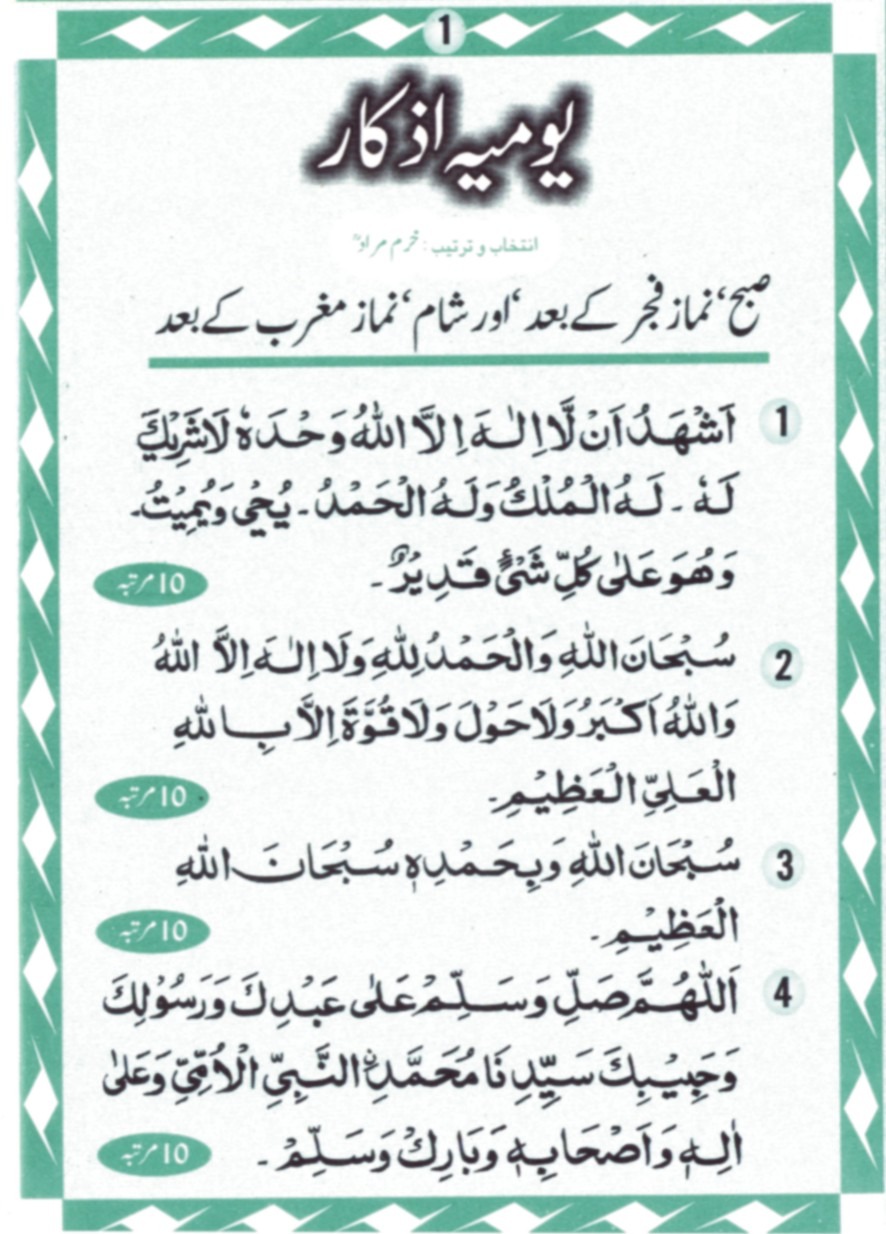 1
یومیہ اذکار
انتخاب و ترتیب : خرم مرادؒ
صبح، نماز فجر کے بعد، اور شام، نماز مغرب کے بعد
1 اَشْهَدُ اَنْ لَّا اِلٰهَ اِلَّا اللهُ وَحْدَهٗ لَاشَرِيْكَ
لَهٗ ۔ لَهُ الْمُلْكُ وَلَهُ الْحَمْدُ ۔ يُحْيٖ وَيُمِيْتُ۔
وَهُوَ عَلٰى كُلِّ شَیْءٍ قَدِيْرٌ ۔ 10 مرتبہ
2 سُبْحَانَ اللهِ وَالْحَمْدُ لِلّٰهِ وَلَا اِلٰهَ اِلَّا اللهُ
وَاللهُ اَكْبَرُ وَلَا حَوْلَ وَلَا قُوَّةَ اِلَّا بِاللهِ
الْعَلِيِّ الْعَظِيْمِ۔ 10 مرتبہ
3 سُبْحَانَ اللهِ وَبِحَمْدِهٖ سُبْحَانَ اللهِ
الْعَظِيْمِ ۔ 10 مرتبہ
4 اَللّٰهُمَّ صَلِّ وَسَلِّمْ عَلٰى عَبْدِكَ وَرَسُوْلِكَ
وَحَبِيْبِكَ سَيِّدِنَا مُحَمَّدِنِ النَّبِيِّ الْاُمِّيِّ وَعَلٰى
اٰلِهٖ وَاَصْحَابِهٖ وَبَارِكْ وَسَلِّمْ ۔ 10 مرتبہ